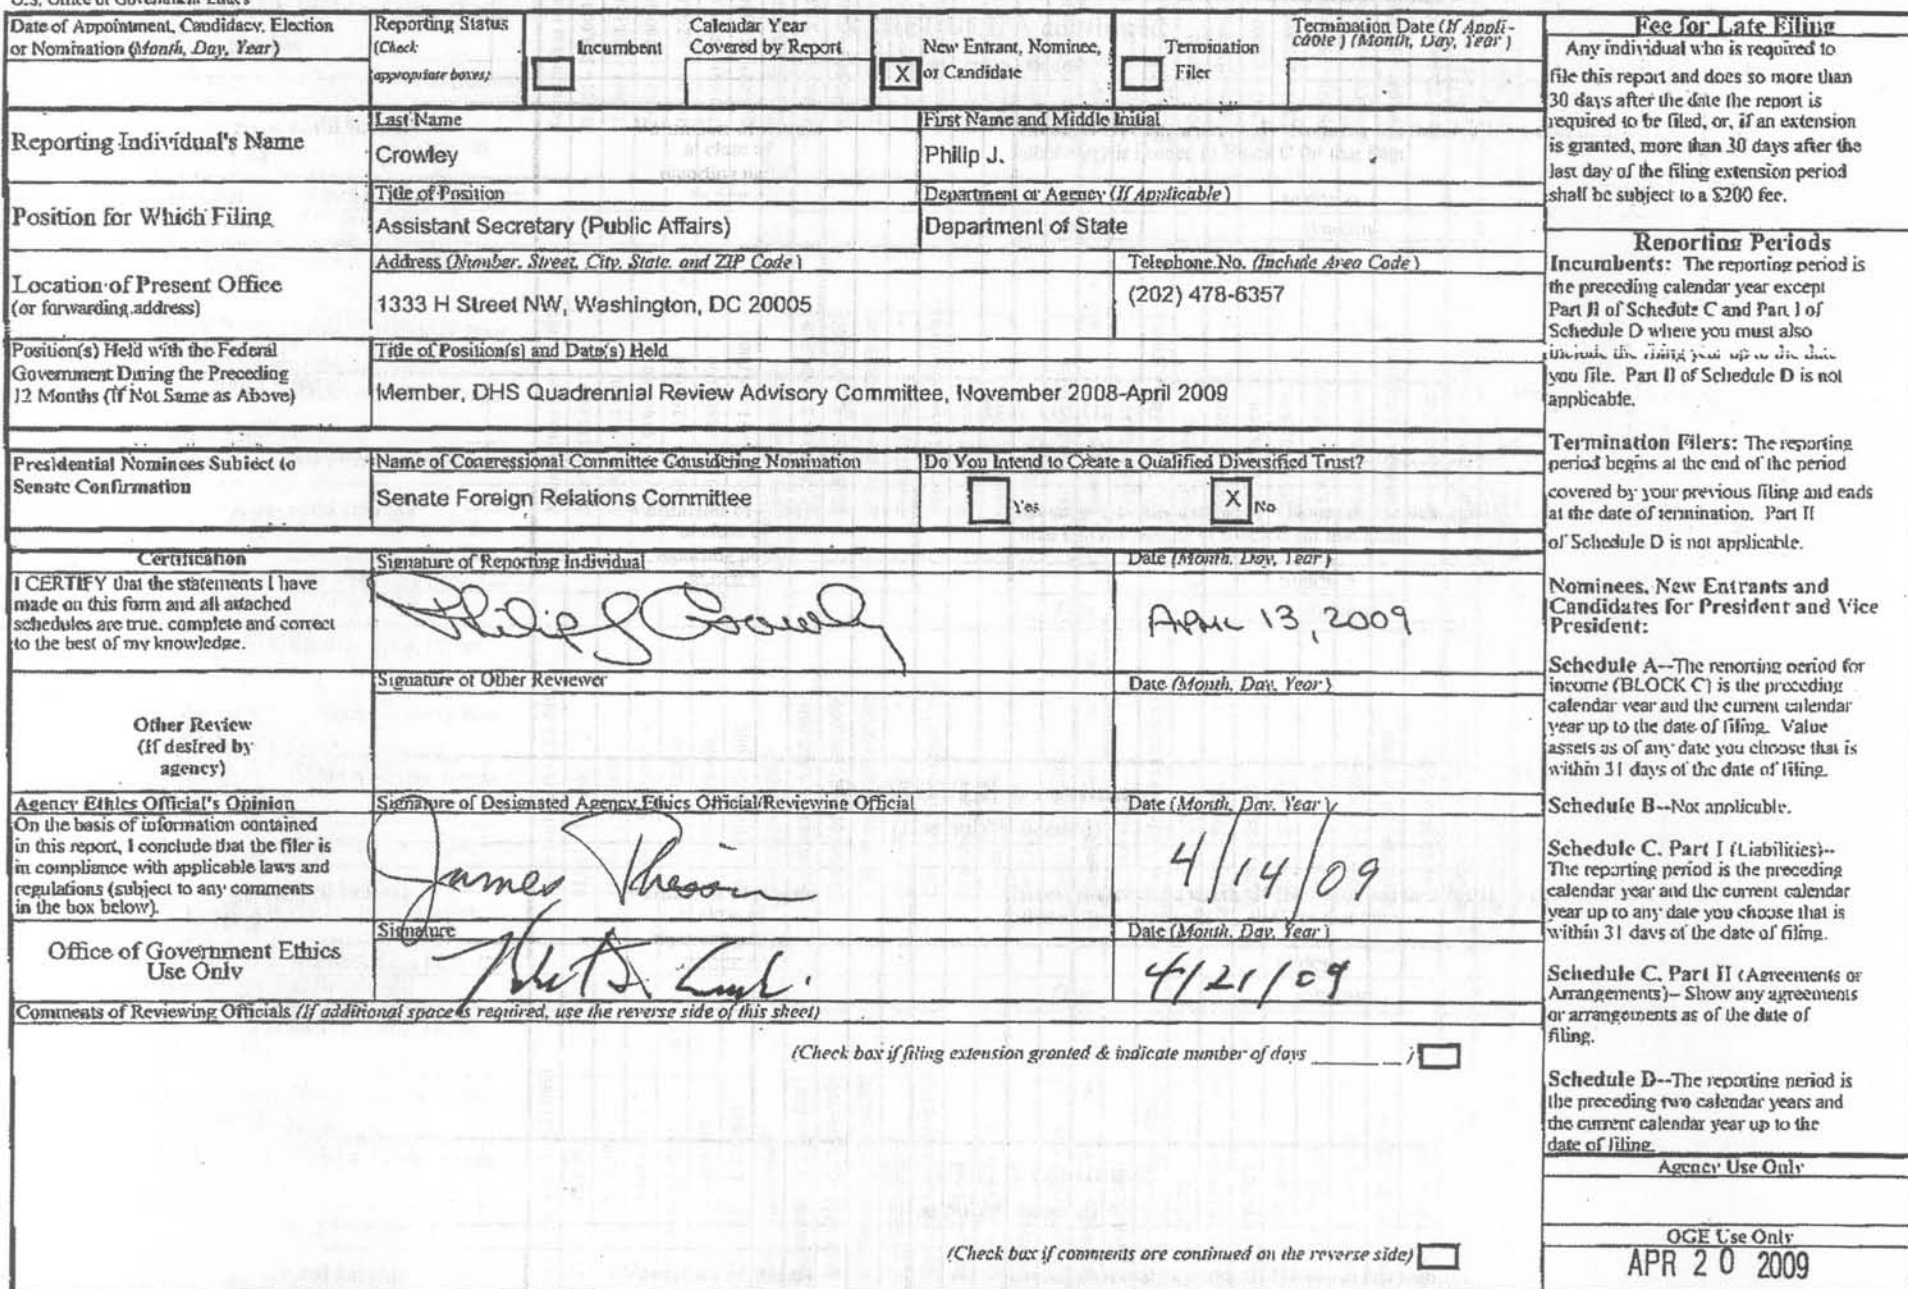 U.S. Office of Government Ethics
Date of Appointment, Candidacy, Election
or Nomination (Month, Day, Year)
Reporting Status
(Check
appropriate boxes)
Incumbent
Calendar Year
Covered by Report
X
New Entrant, Nominee,
or Candidate
Termination
Filer
Termination Date (If Appli-
cable) (Month, Day, Year)
Reporting Individual's Name
Last Name
Crowley
First Name and Middle Initial
Philip J.
Position for Which Filing
Title of Position
Assistant Secretary (Public Affairs)
Department or Agency (If Applicable)
Department of State
Location of Present Office
(or forwarding address)
Address (Number, Street, City, State, and ZIP Code)
1333 H Street NW, Washington, DC 20005
Telephone No. (Include Area Code)
(202) 478-6357
Position(s) Held with the Federal
Government During the Preceding
12 Months (If Not Same as Above)
Title of Position(s) and Date(s) Held
Member, DHS Quadrennial Review Advisory Committee, November 2008-April 2009
Presidential Nominees Subject to
Senate Confirmation
Name of Congressional Committee Considering Nomination
Senate Foreign Relations Committee
Do You Intend to Create a Qualified Diversified Trust?
Yes
X
No
Certification
I CERTIFY that the statements I have
made on this form and all attached
schedules are true, complete and correct
to the best of my knowledge.
Signature of Reporting Individual
Philip J Crowley
Date (Month, Day, Year)
APRIL 13, 2009
Other Review
(If desired by
agency)
Signature of Other Reviewer
Date (Month, Day, Year)
Agency Ethics Official's Opinion
On the basis of information contained
in this report, I conclude that the filer is
in compliance with applicable laws and
regulations (subject to any comments
in the box below).
Signature of Designated Agency Ethics Official/Reviewing Official
James
Date (Month, Day, Year)
4/14/09
Office of Government Ethics
Use Only
Signature
Date (Month, Day, Year)
4/21/09
Comments of Reviewing Officials (If additional space is required, use the reverse side of this sheet)
(Check box if filing extension granted & indicate number of days ________ )
(Check box if comments are continued on the reverse side)
Fee for Late Filing
Any individual who is required to
file this report and does so more than
30 days after the date the report is
required to be filed, or, if an extension
is granted, more than 30 days after the
last day of the filing extension period
shall be subject to a $200 fee.
Reporting Periods
Incumbents: The reporting period is
the preceding calendar year except
Part II of Schedule C and Part I of
Schedule D where you must also
include the filing year up to the date
you file. Part II of Schedule D is not
applicable.
Termination Filers: The reporting
period begins at the end of the period
covered by your previous filing and ends
at the date of termination. Part II
of Schedule D is not applicable.
Nominees, New Entrants and
Candidates for President and Vice
President:
Schedule A--The reporting period for
income (BLOCK C) is the preceding
calendar year and the current calendar
year up to the date of filing. Value
assets as of any date you choose that is
within 31 days of the date of filing.
Schedule B--Not applicable.
Schedule C, Part I (Liabilities)--
The reporting period is the preceding
calendar year and the current calendar
year up to any date you choose that is
within 31 days of the date of filing.
Schedule C, Part II (Agreements or
Arrangements)-- Show any agreements
or arrangements as of the date of
filing.
Schedule D--The reporting period is
the preceding two calendar years and
the current calendar year up to the
date of filing.
Agency Use Only
OGE Use Only
APR 20 2009